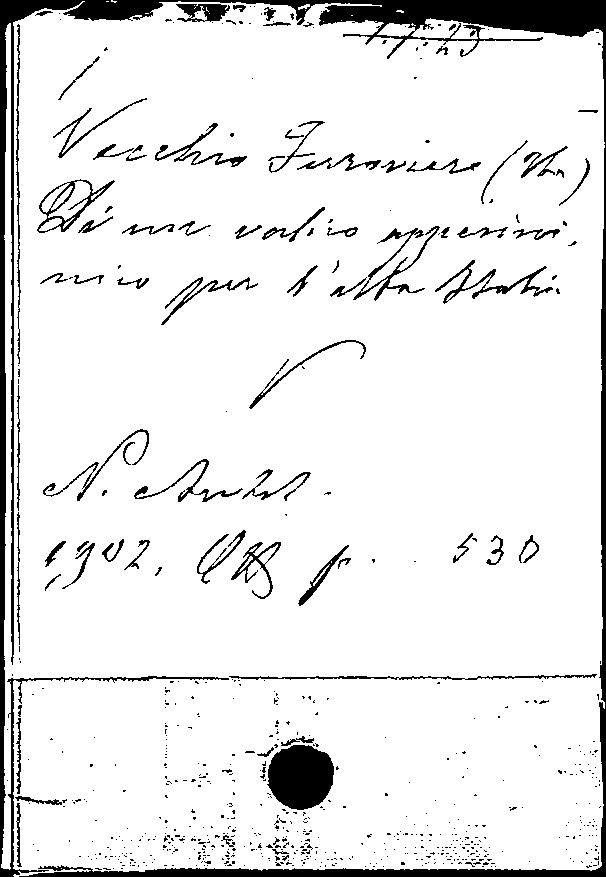 1.7.23
Vecchio Ferroviere (Un)
Di un valico appenni,
nico per l'alta Italia
V
N. Antol.
1902, p. 530